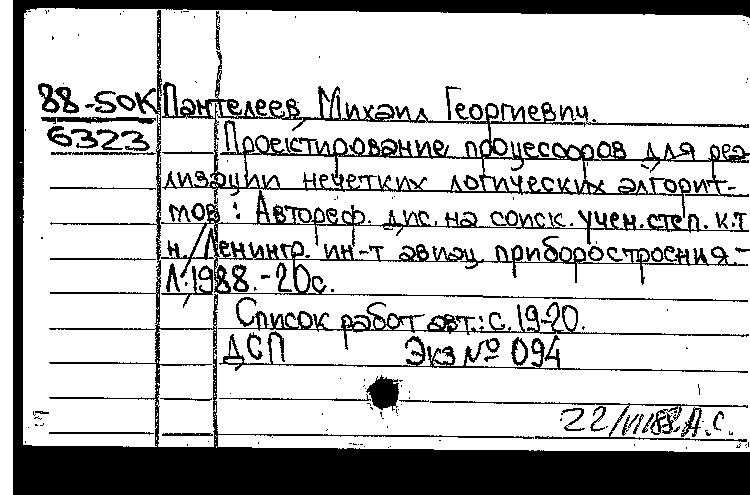 88-50К Пантелеев, Михаил Георгиевич.
6323 Проектирование процессоров для реа-
лизации нечетких логических алгорит-
мов : Автореф. дис. на соиск. учен. степ. к.т
н. /Ленингр. ин-т авиац. приборостроения.-
Л.:1988.-20с.
Список работ авт.: с. 19-20.
ДСП Экз № 094
22/VI 88. А.С.